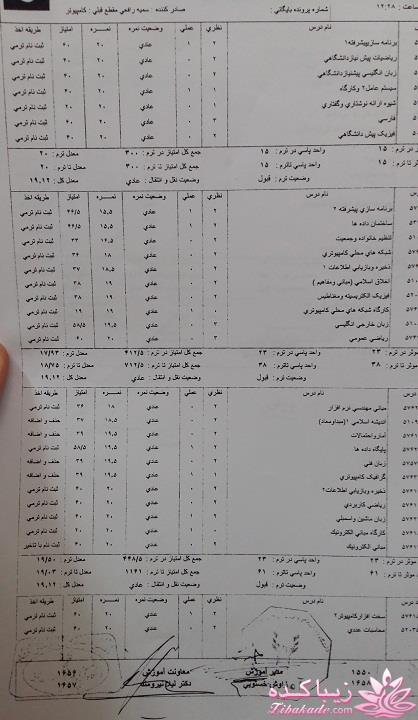 ساعت : ۱۲:۲۸ شماره پرونده بایگانی : صادر کننده : سمیه رافعی مقطع قبلی : کامپیوتر
نام درس نظری عملی وضعیت نمره نمـــره امتیاز طریقه اخذ
برنامه سازیپیشرفته۱ ۱ عادی ۲۰ ۶۰ ثبت نام ترمی
ریاضیات پیش نیازدانشگاهی عادی ۲۰ ۴۰ ثبت نام ترمی
زبان انگلیسی پیشنیازدانشگاهی عادی ۲۰ ۴۰ ثبت نام ترمی
سیستم عامل۲ وکارگاه ۱ ۱ عادی ۲۰ ۴۰ ثبت نام ترمی
شیوه ارائه نوشتاری وگفتاری عادی ۲۰ ۴۰ ثبت نام ترمی
فارسی ۳ ۰ عادی ۲۰ ۶۰ ثبت نام ترمی
فیزیک پیش دانشگاهی عادی ۲۰ ۴۰ ثبت نام ترمی
۱۵ واحد پاسی در ترم : ۱۵ جمع کل امتیاز در ترم : ۳۰۰ معدل ترم : ۲۰
۱۵ واحد پاسی تاترم : ۱۵ جمع کل امتیاز تا ترم : ۳۰۰ معدل تا ترم : ۲۰
وضعیت ترم : قبول وضعیت نقل و انتقال : عادی معدل کل : ۱۹,۱۲
نام درس نظری عملی وضعیت نمره نمـــره امتیاز طریقه اخذ
برنامه سازی پیشرفته ۲ ۲ ۱ عادی ۱۵,۵ ۴۶/۵ ثبت نام ترمی
ساختمان داده ها ۲ ۱ عادی ۱۵,۵ ۴۶/۵ ثبت نام ترمی
تنظیم خانواده وجمعیت عادی ۱۶,۵ ۳۳ ثبت نام ترمی
شبکه های محلی کامپیوتری ۲ ۰ عادی ۱۸ ۳۶ ثبت نام ترمی
ذخیره وبازیابی اطلاعات ۱ ۲ ۰ عادی ۱۸,۵ ۳۷ ثبت نام ترمی
اخلاق اسلامی (مبانی ومفاهیم ) ۲ ۰ عادی ۱۹ ۳۸ ثبت نام ترمی
فیزیک الکتریسیته ومغناطیس ۲ ۰ عادی ۱۹ ۳۸ ثبت نام ترمی
کارگاه شبکه های محلی کامپیوتری ۰ ۱ عادی ۱۹ ۱۹ ثبت نام ترمی
زبان خارجی انگلیسی ۳ ۰ عادی ۱۹,۵ ۵۸/۵ ثبت نام ترمی
ریاضی عمومی ۳ ۰ عادی ۲۰ ۶۰ ثبت نام ترمی
موثر در ترم : ۲۳ واحد پاسی در ترم : ۲۳ جمع کل امتیاز در ترم : ۴۱۲/۵ معدل ترم : ۱۷/۹۳
موثر تا ترم : ۳۸ واحد پاسی تاترم : ۳۸ جمع کل امتیاز تا ترم : ۷۱۲/۵ معدل تا ترم : ۱۸/۷۵
وضعیت ترم : قبول وضعیت نقل و انتقال : عادی معدل کل : ۱۹,۱۲
نام درس نظری عملی وضعیت نمره نمـــره امتیاز طریقه اخذ
مبانی مهندسی نرم افزار ۲ ۰ عادی ۱۸ ۳۶ ثبت نام ترمی
اندیشه اسلامی ۱(مبداومعاد) ۲ ۰ عادی ۱۸,۵ ۳۷ حذف و اضافه
آمارواحتمالات ۲ ۰ عادی ۱۹,۵ ۳۹ حذف و اضافه
پایگاه داده ها عادی ۱۹,۵ ۵۸/۵ ثبت نام ترمی
زبان فنی ۲ ۰ عادی ۱۹,۵ ۳۹ حذف و اضافه
گرافیک کامپیوتری عادی ۱۹,۵ ۳۹ حذف و اضافه
ذخیره وبازیابی اطلاعات۲ عادی ۲۰ ۴۰ ثبت نام ترمی
ریاضی کاربردی عادی ۲۰ ثبت نام ترمی
زبان ماشین واسمبلی عادی ۲۰ ۴۰ ثبت نام ترمی
کارگاه مبانی الکترونیک ۰ ۱ عادی ۲۰ ۲۰ ثبت نام ترمی
مبانی الکترونیک ۲ ۰ عادی ۲۰ ۴۰ ثبت نام با تاخیر
موثر در ترم : ۲۳ واحد پاسی در ترم : ۲۳ جمع کل امتیاز در ترم : ۴۴۸/۵ معدل ترم : ۱۹/۵۰
موثر تا ترم : ۶۱ واحد پاسی تاترم : ۶۱ جمع کل امتیاز تا ترم : ۱۱۶۱ معدل تا ترم : ۱۹/۰۳
وضعیت ترم : قبول وضعیت نقل و انتقال : عادی معدل کل : ۱۹,۱۲
نام درس نظری عملی وضعیت نمره نمـــره امتیاز طریقه اخذ
سخت افزارکامپیوتر۲ عادی ۲۰ ۴۰ ثبت نام ترمی
محاسبات عددی عادی ۲۰ ۴۰ ثبت نام ترمی
۱۵۵۰ مدیر آموزش معاونت آموزش ۱۶۵۶
۱۶۵۸ دکتر نیرومند ۱۶۵۷
زیباکده
Zibakade.com